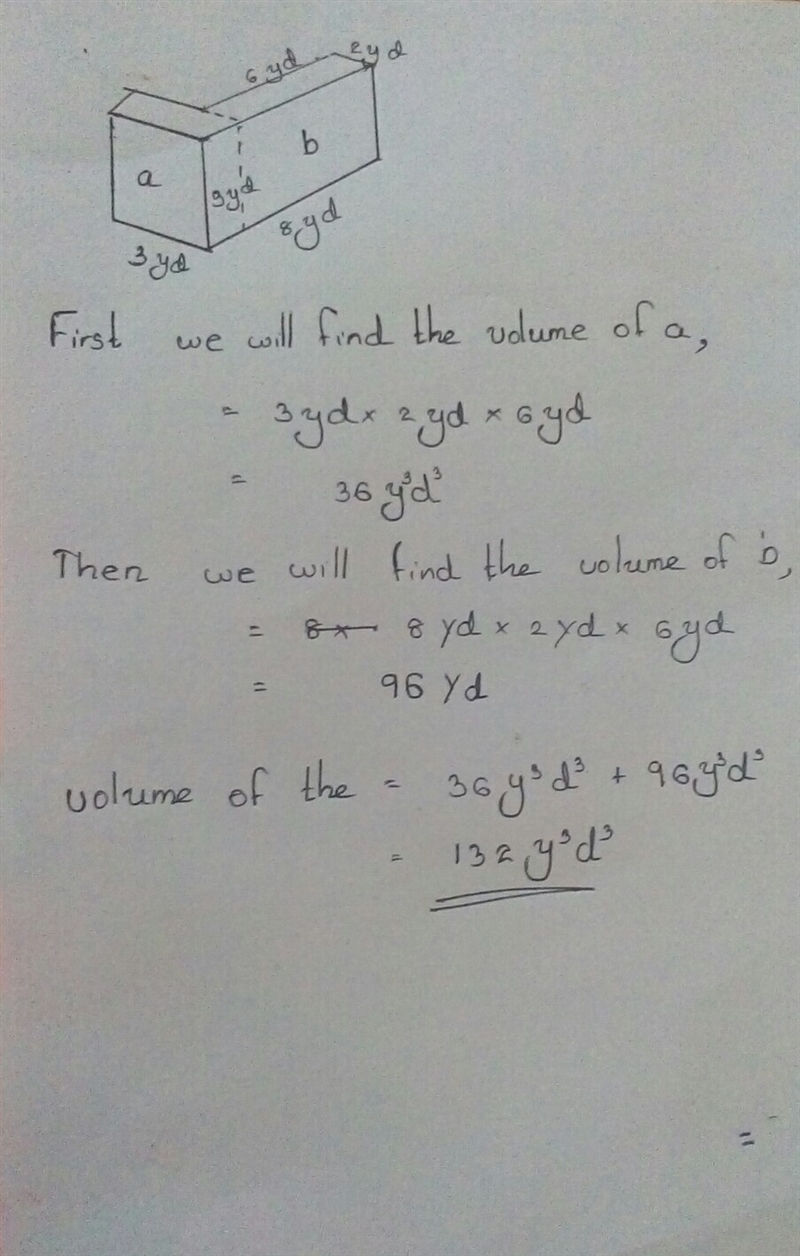 6 yd 2 yd
a b
9yd
3 yd 8 yd
First we will find the volume of a,
= 3 yd × 2 yd × 6 yd
= 36 y³d³
Then we will find the volume of b,
= 8 × 8 yd × 2 yd × 6 yd
= 96 yd
volume of the = 36 y³d³ + 96 y³d³
= 132 y³d³
=